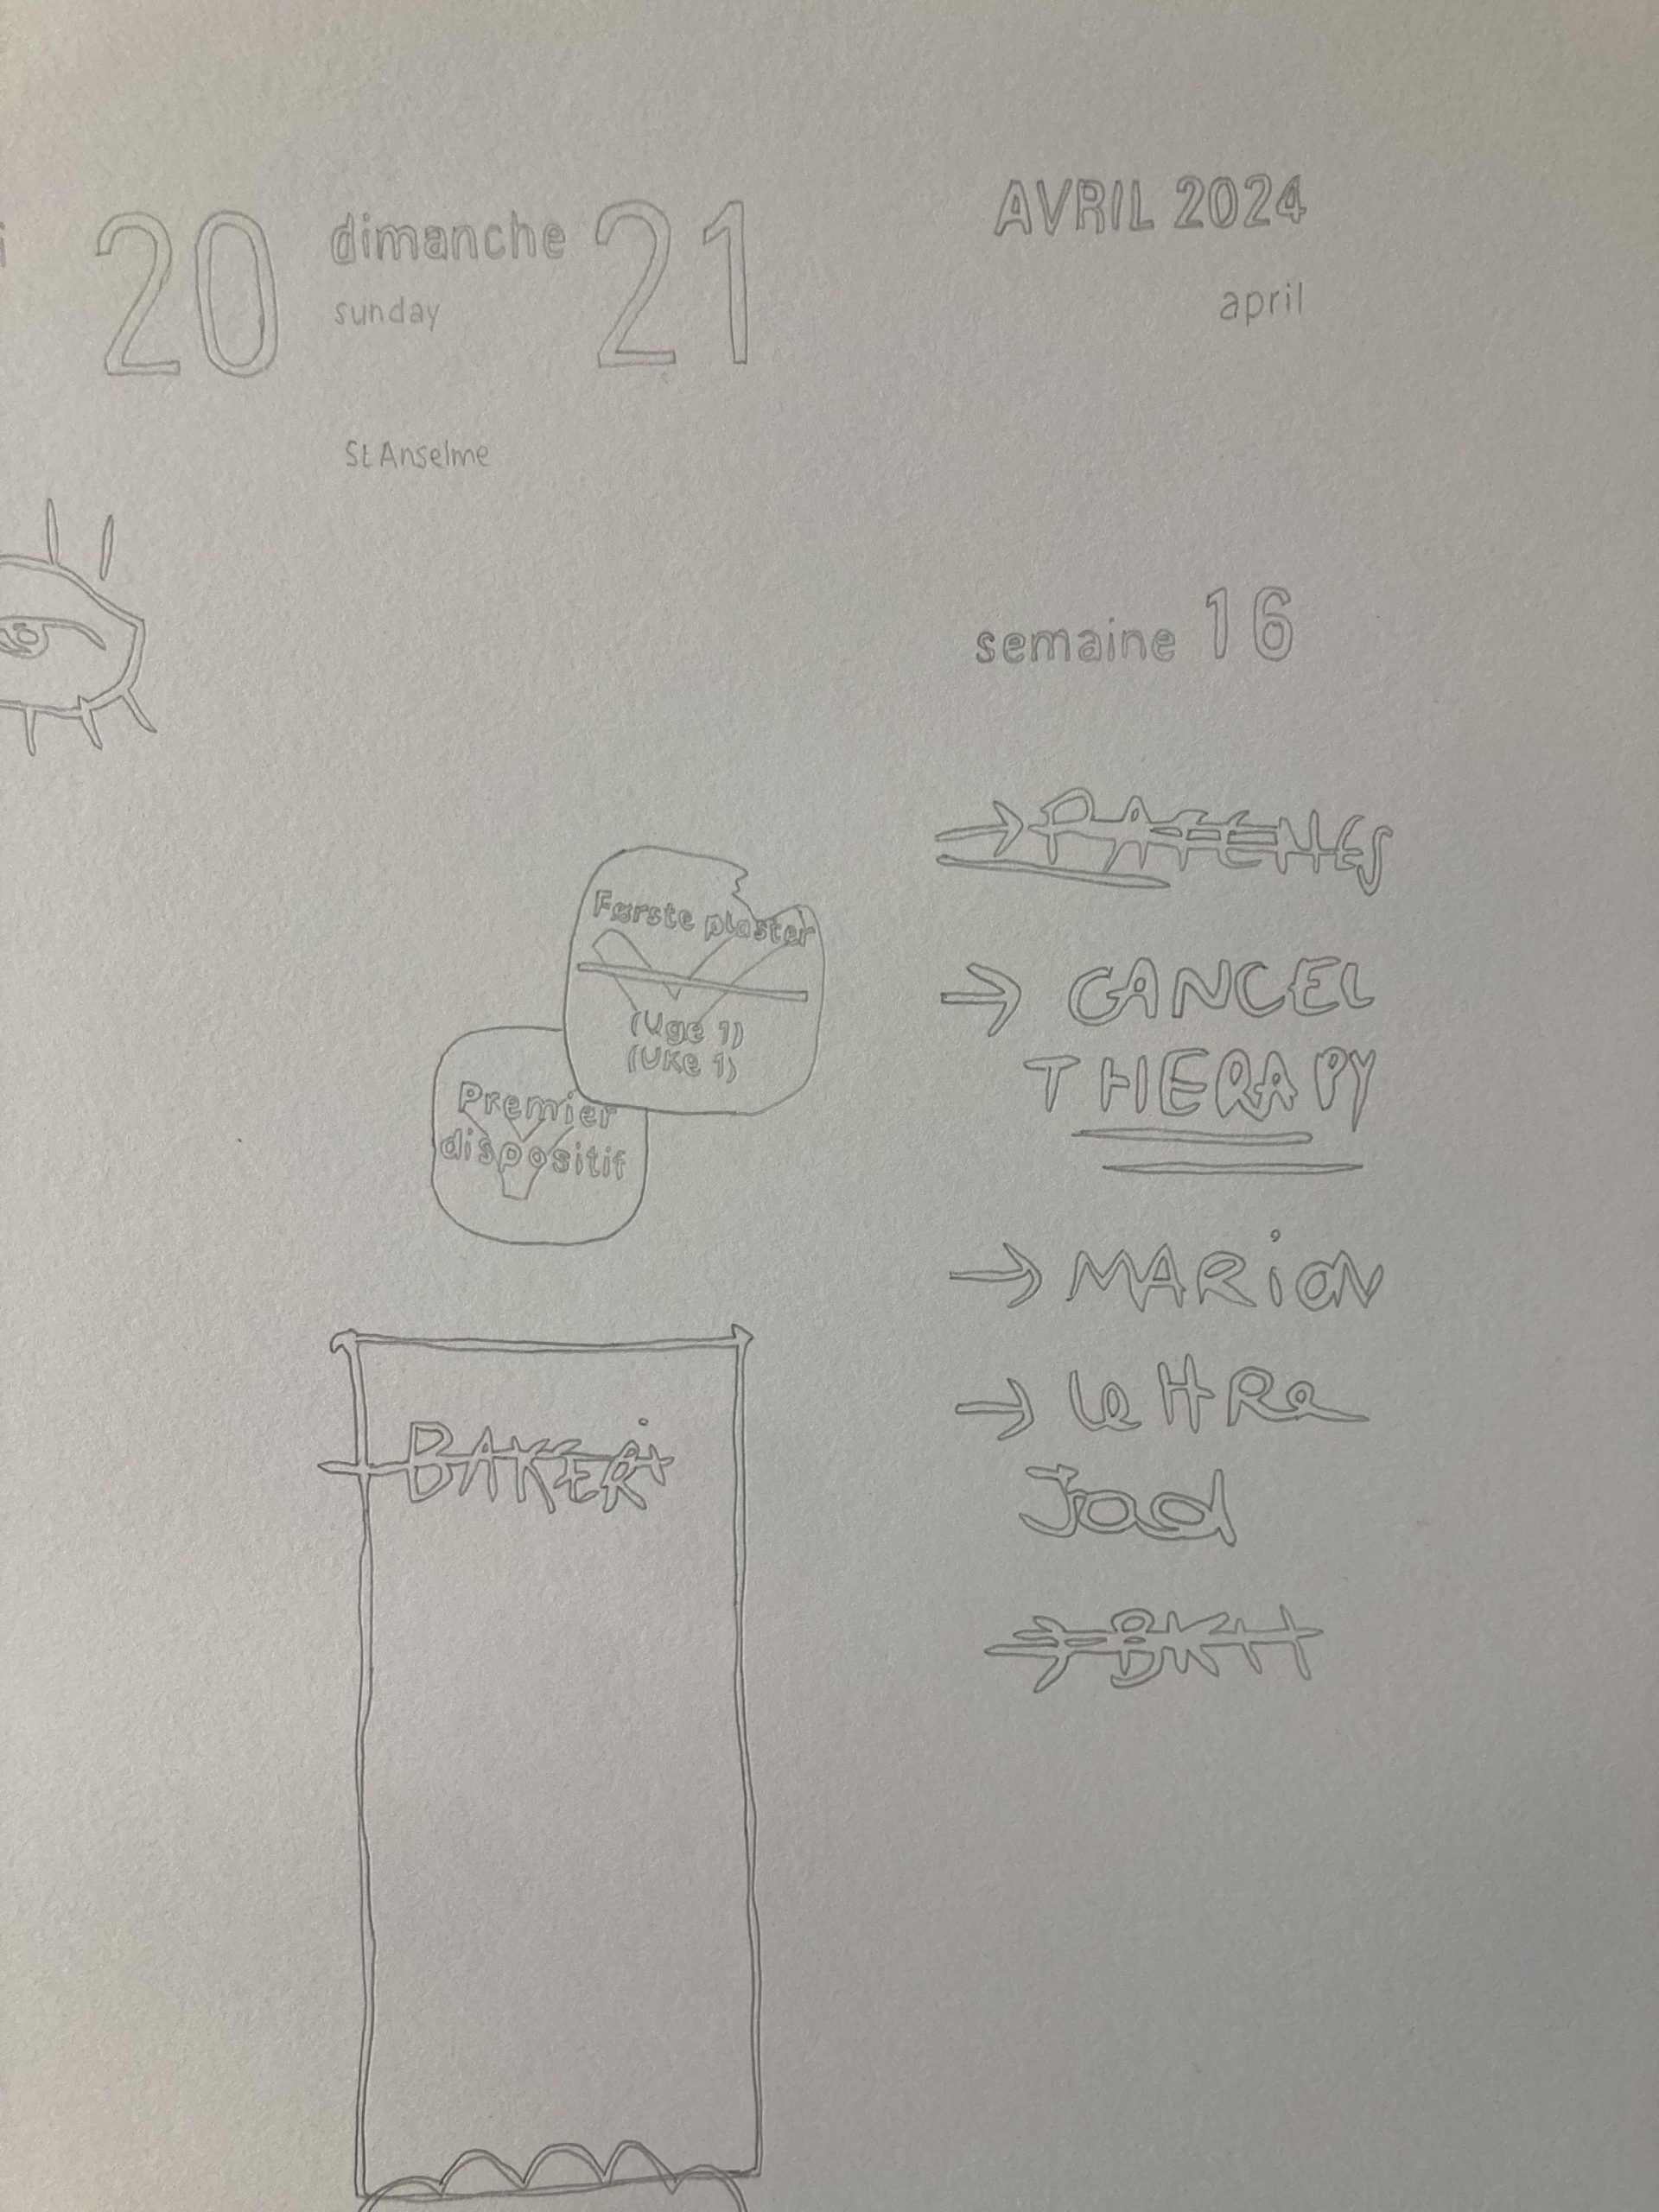 20 dimanche 21
sunday
St Anselme
AVRIL 2024
april
semaine 16
Første plaster
(Uge 1)
(Uke 1)
Premier
dispositif
BAKER
→ CANCEL
THERAPY
→ MARiON
→ lettRe
Jad
→ BKH